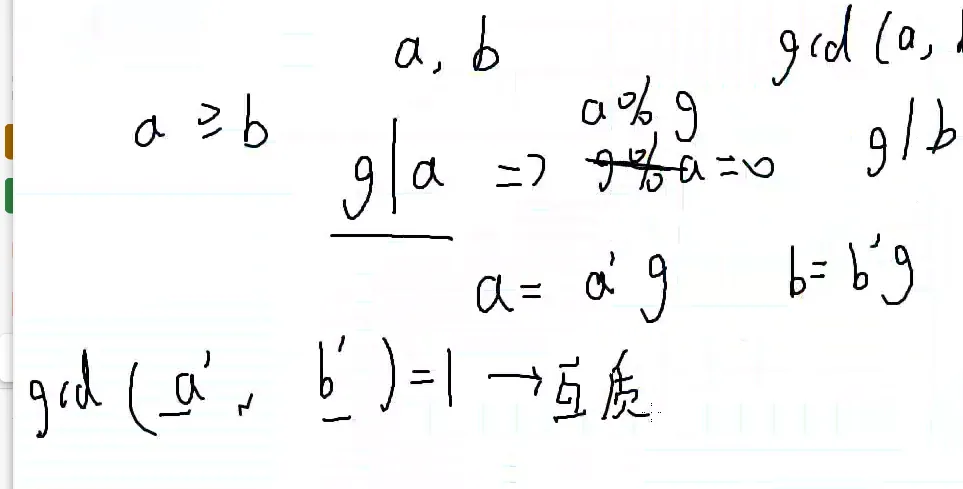 a, b gcd (a,
a ≥ b a % g
g | a => g % a = 0 g | b
a = a' g b = b' g
gcd ( a', b' ) = 1 → 互质